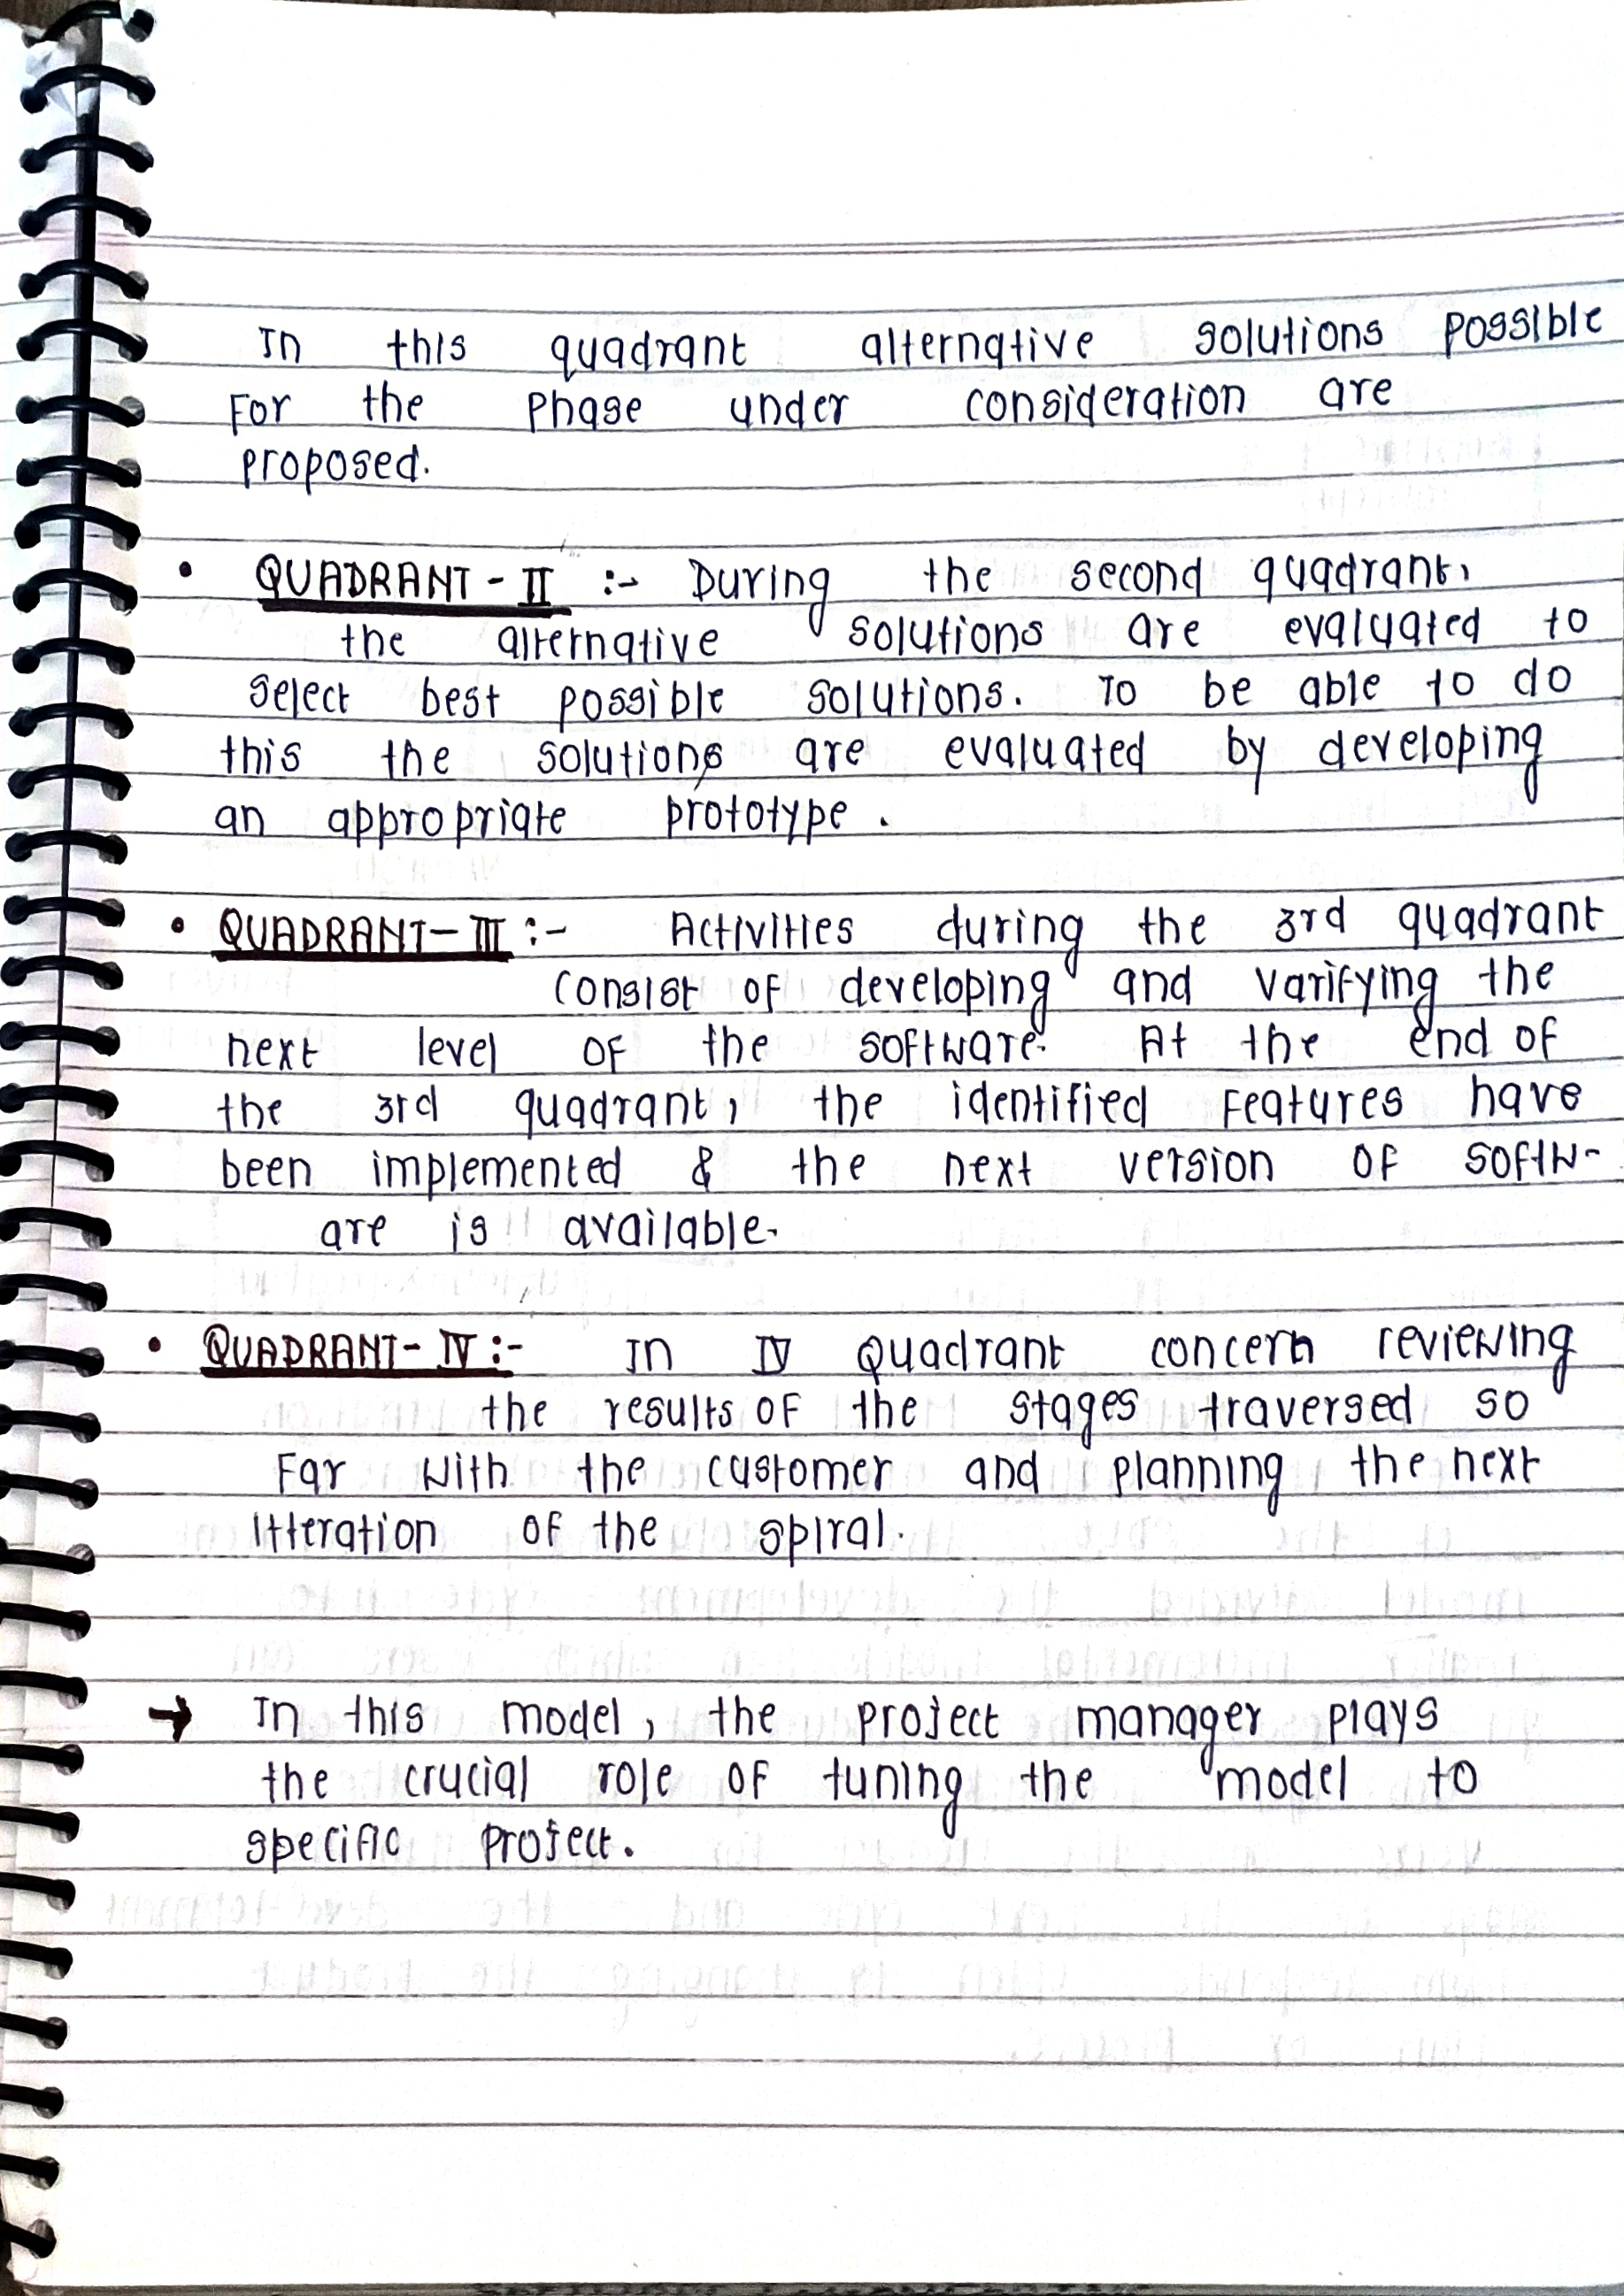 In this quadrant alternative solutions possible
For the Phase under consideration are
proposed.
• QUADRANT - II :- During the second quadrant,
the alternative solutions are evaluated to
select best possible solutions. To be able to do
this the solutions are evaluated by developing
an appropriate prototype.
• QUADRANT- III :- Activities during the 3rd quadrant
consist of developing and varifying the
next level of the software. At the end of
the 3rd quadrant, the identified Features have
been implemented & the next version of softw-
are is available.
• QUADRANT- IV :- In IV Quadrant concern reviewing
the results of the stages traversed so
Far with the customer and planning the next
itteration of the spiral.
→ In this model, the project manager plays
the crucial role of tuning the model to
specific project.